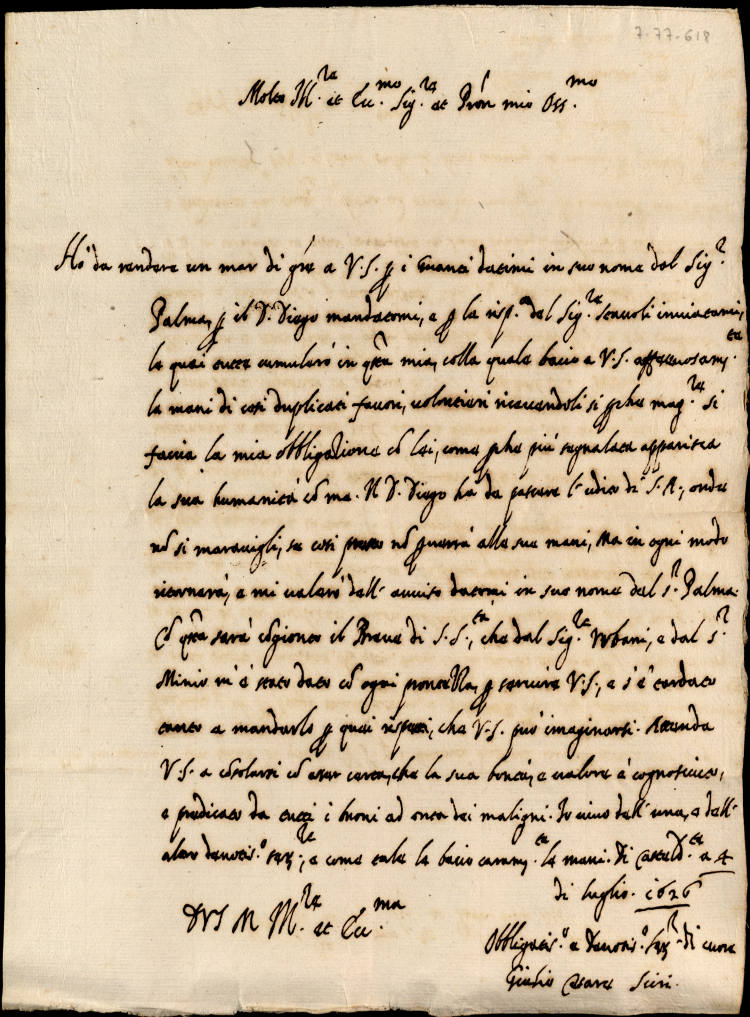 7-77-618
Molto Ill.re et Ecc.mo Sig.re et Prōn mio Oss.mo
Ho da rendere un mar di grē a V.S. ꝑ i guanti datimi in suo nome dal Sig.r
Palma, ꝑ il D. Diego mandatomi, e ꝑ la risp.a del Sig.re inviatami,
le quai tutte cumulerò in qūa mia, colla quale bacio a V.S. affettuosam.te
le mani di così duplicati favori, volentieri ricevendoli sì ꝑche mag.re si
faccia la mia obbligazione cō lei, come ꝑche più segnalata apparisca
la sua humanità cō me. Il D. Diego hà da passare l'udito di S.A., onde
nō si maravigli, se così presto nō ꝑverrà alle sue mani, ma in ogni modo
ritornerà, e mi valerò dell' avviso datomi in suo nome dal S.r Palma.
Cō qūa sarà cōgionto il Breve di S.S.tà, che dal Sig.re Urbani, e dal S.r
Minio m'è stato dato cō ogni prontezza, ꝑ servire V.S., e s'è tardato
tanto a mandarlo ꝑ quei rispetti, che V.S. può imaginarsi. Attenda
V.S. a cōsolarsi cō esser certa, che la sua bontà, e valore è cognosciuto,
e predicato da tutti i buoni ad onta dei maligni. Io vivo dell' una, e dell'
altro devotis.o ser.re, e come tale le bacio caram.te le mani. Di Castel D.te a 4
di luglio. 1626
D V S M Ill.re et Ecc.ma
Obbligatis.o e Devotis.o ser.r di cuore
Giulio Cesare